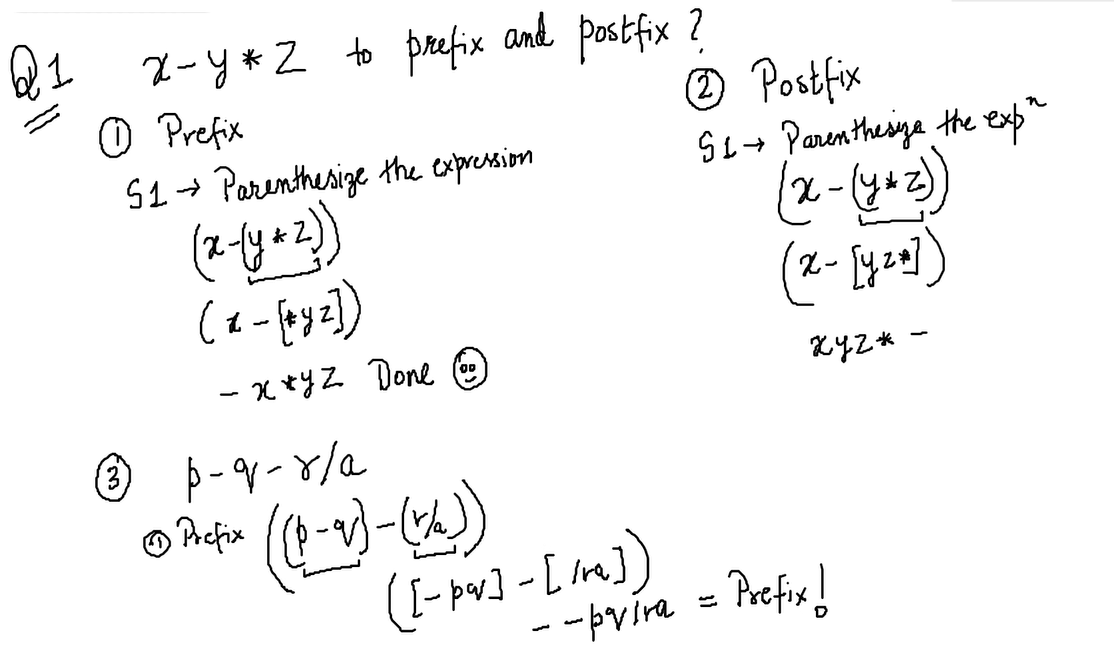 Q1 x-y*z to prefix and postfix?
① Prefix
S1 → Parenthesize the expression
(x-(y*z))
(x-[*yz])
-x*yz Done
② Postfix
S1 → Parenthesize the expⁿ
(x-(y*z))
(x-[yz*])
xyz*-
③ p-q-r/a
① Prefix ((p-q)-(r/a))
([-pq]-[/ra])
--pq/ra = Prefix!